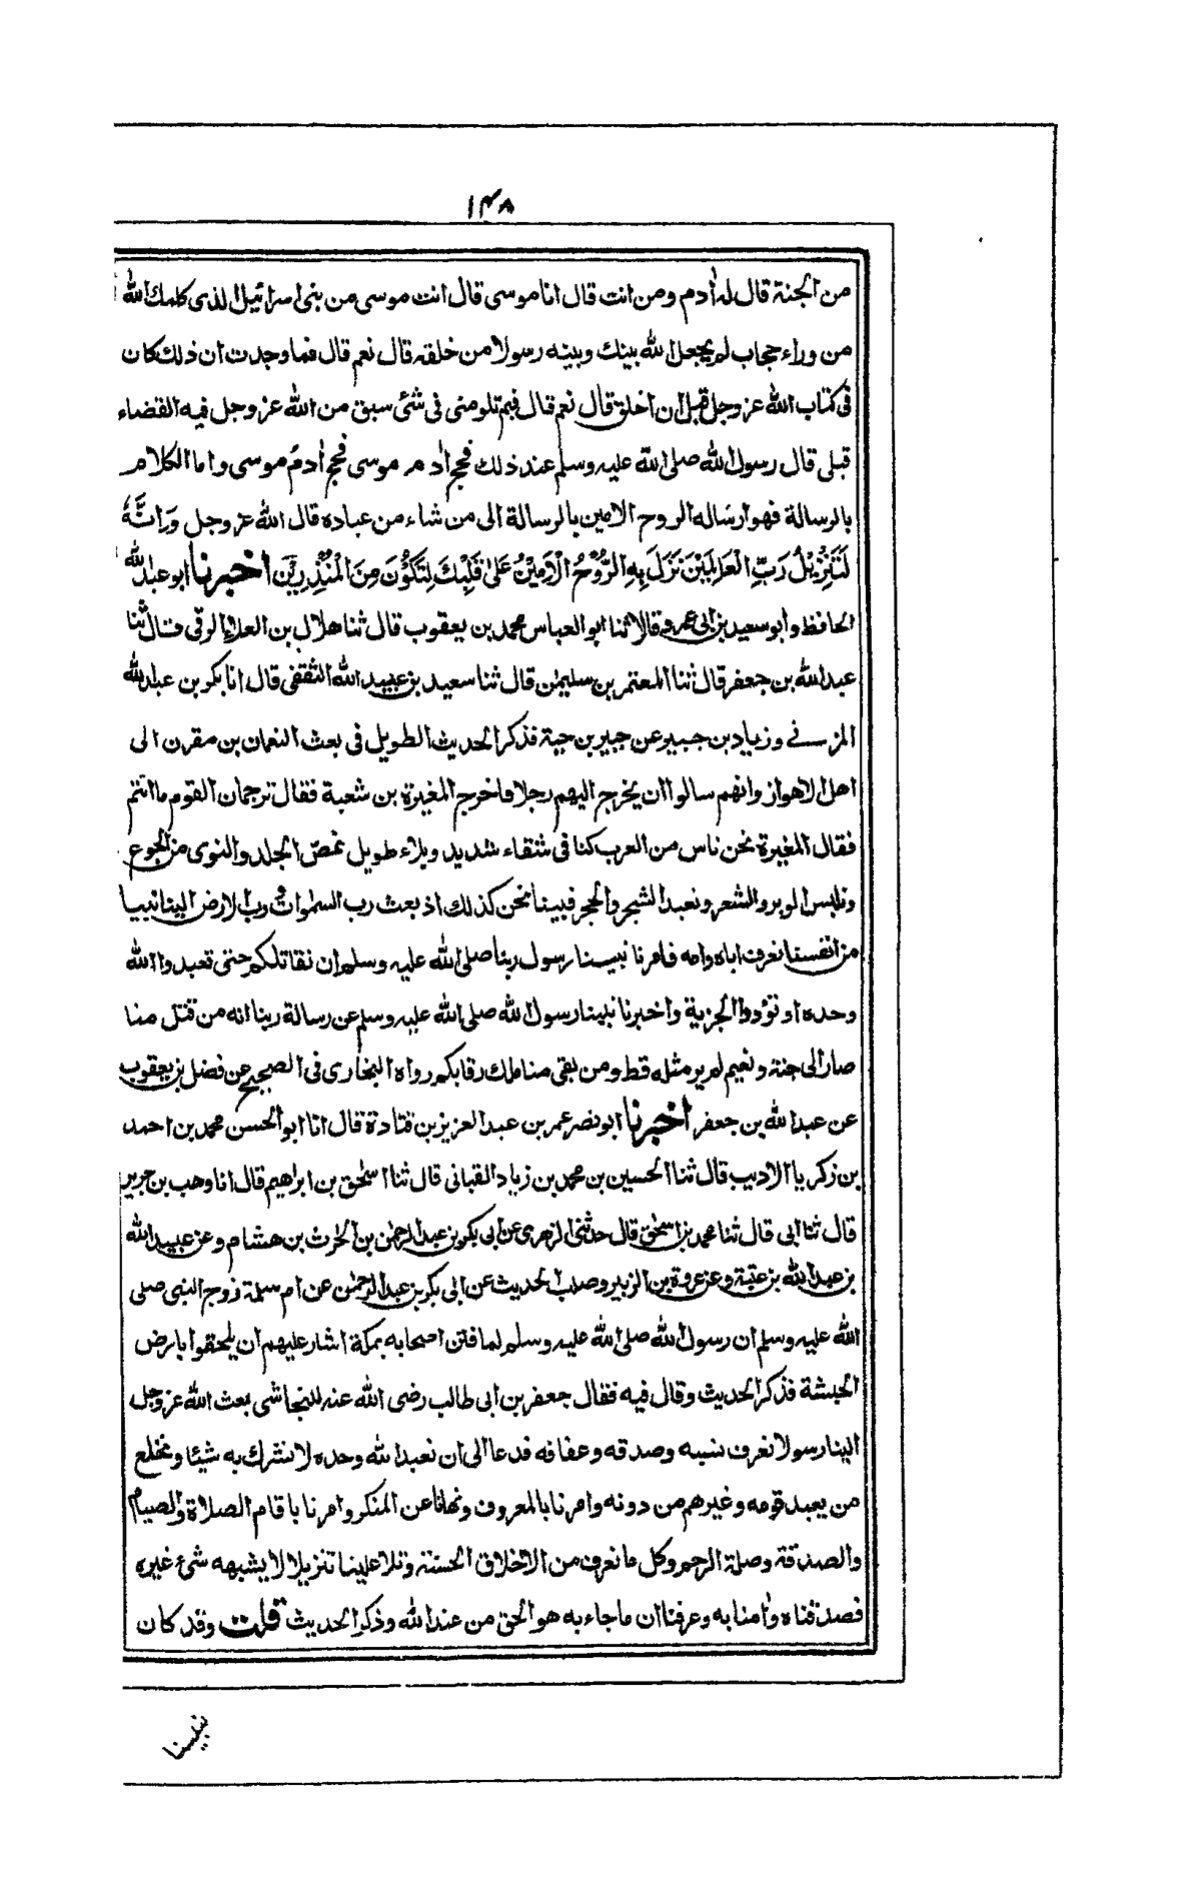 ١٤٨
من الجنة قال له أدم ومن انت قال انا موسى قال انت موسى من بنى اسرائيل الذى كلمك الله
من وراء حجاب لم يجعل الله بينك وبينه رسولا من خلقه قال نعم قال فما وجدت ان ذلك كان
فى كتاب الله عز وجل قبل ان اخلق قال نعم قال فبم تلومنى فى شئ سبق من الله عز وجل فيه القضاء
قبلى قال رسول الله صلى الله عليه وسلم عند ذلك فحج ادم موسى فحج أدم موسى واما الكلام
بالرسالة فهو ارساله الروح الامين بالرسالة الى من شاء من عباده قال الله عز وجل وَاِنَّهٗ
لَتَنْزِيْلُ رَبِّ الْعَالَمِيْنَ نَزَلَ بِهِ الرُّوْحُ الْاَمِيْنُ عَلٰى قَلْبِكَ لِتَكُوْنَ مِنَ الْمُنْذِرِيْنَ اخبرنا ابو عبد الله
الحافظ وابو سعيد بن ابى عمرو قالا ثنا ابو العباس محمد بن يعقوب قال ثنا هلال بن العلاء الرقى قال ثنا
عبد الله بن جعفر قال ثنا المعتمر بن سليمٰن قال ثنا سعيد بن عبيد الله الثقفى قال انا بكر بن عبد الله
المزنے وزياد بن جبير عن جبير بن حية فذكر الحديث الطويل فى بعث النعمان بن مقرن الى
اهل الاهواز وانهم سالوا ان يخرج اليهم رجلا فاخرج المغيرة بن شعبة فقال ترجمان القوم ما انتم
فقال المغيرة نحن ناس من العرب كنا فى شقاء شديد وبلاء طويل نمص الجلد والنوى من الجوع
ونلبس الوبر والشعر ونعبد الشجر والحجر فبينا نحن كذلك اذ بعث رب السمٰوات ورب الارض الينا نبيا
من انفسنا نعرف اباه وامه فامرنا نبينا رسول ربنا صلى الله عليه وسلم ان نقاتلكم حتى تعبدوا الله
وحده او تؤدوا الجزية واخبرنا نبينا رسول الله صلى الله عليه وسلم عن رسالة ربنا انه من قتل منا
صار الى جنة ونعيم لم ير مثله قط ومن بقى منا ملك رقابكم رواه البخارى فى الصحيح عن فضل بن يعقوب
عن عبد الله بن جعفر اخبرنا ابو نصر عمر بن عبد العزيز بن قتادة قال انا ابو الحسن محمد بن احمد
بن زكريا الاديب قال ثنا الحسين بن محمد بن زياد القبانى قال ثنا اسحٰق بن ابراهيم قال انا وهب بن جرير
قال ثنا ابى قال ثنا محمد بن اسحٰق قال حدثنى الزهرى عن ابى بكر بن عبد الرحمٰن بن الحٰرث بن هشام وعن عبيد الله
بن عبد الله بن عتبة وعن عروة بن الزبير وصلب الحديث عن ابى بكر بن عبد الرحمٰن عن ام سلمة زوج النبى صلى
الله عليه وسلم ان رسول الله صلى الله عليه وسلم لما فتن اصحابه بمكة اشار عليهم ان يلحقوا بارض
الحبشة فذكر الحديث وقال فيه فقال جعفر بن ابى طالب رضى الله عنه للنجاشى بعث الله عز وجل
الينا رسولا نعرف نسبه وصدقه وعفافه فدعا الى ان نعبد الله وحده لا نشرك به شيئا ونخلع
من يعبد قومه وغيرهم من دونه وامرنا بالمعروف ونهانا عن المنكر وامرنا باقام الصلاة والصيام
والصدقة وصلة الرحم وكل ما نعرف من الاخلاق الحسنة وتلا علينا تنزيلا لا يشبهه شئ غيره
فصدقناه وأمنا به وعرفنا ان ما جاء به هو الحق من عند الله وذكر الحديث قلت وقد كان
نبينا